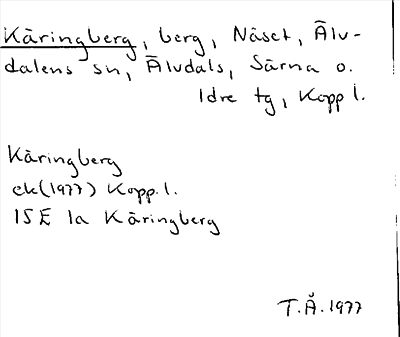 Käringberg, berg, Näset, Älv-
dalens sn, Älvdals, Särna o.
Idre tg, Kopp l.
Käringberg
ek(1977) Kopp. l.
15E 1a Käringberg
T.Å. 1977